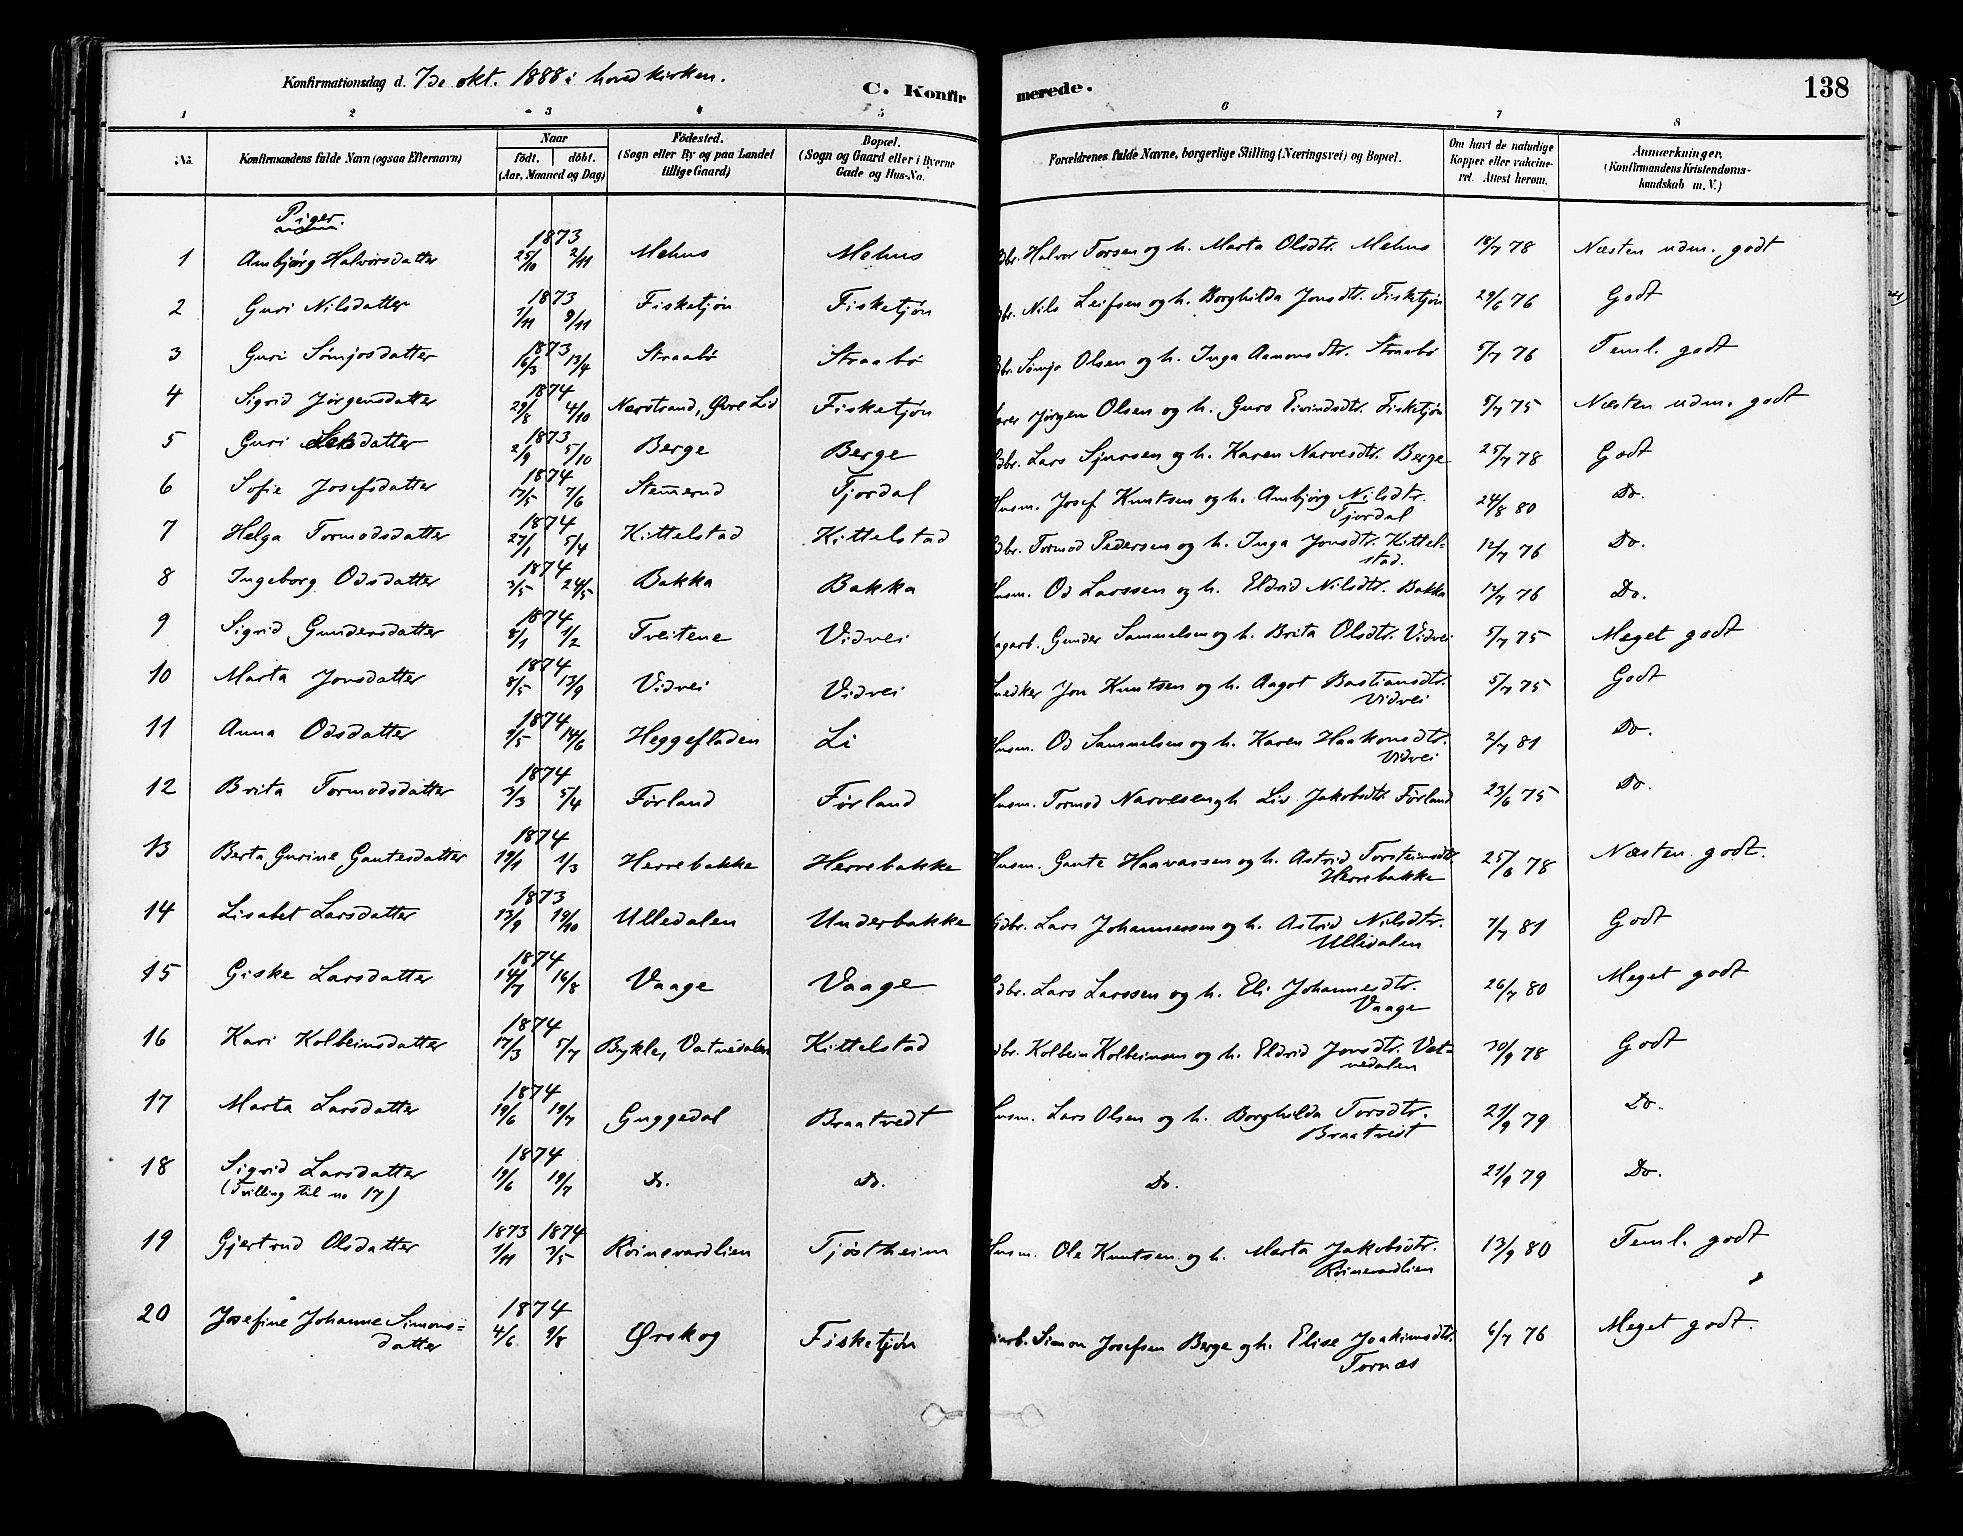 Konfirmationsdag d. 7de okt. 1888 i hovedkirken.
C. Konfirmerede.
138
1 2 3 4 5 6 7 8
No. Konfirmandens fulde Navn (ogsaa Efternavn) Naar födt. döbt. (Aar, Maaned og Dag) Födested. (Sogn eller By og paa Landet tillige Gaard) Bopæl. (Sogn og Gaard eller i Byerne Gade og Hus-No. Forældrenes fulde Navne, borgerlige Stilling (Næringsvei) og Bopæl. Om havt de naturlige Kopper eller vakcineret. Attest herom. Anmærkninger. (Konfirmandens Kristendomskundskab m. V.)
Piger.
1873
1 Ambjørg Halvorsdatter 25/10 2/11 Mehus Mehus Gbr. Halvor Torsen og h. Marta Olsdtr. Mehus 18/7 78 Næsten udm. godt
1873
2 Guri Nilsdatter 1/11 9/11 Fisketjøn Fisketjøn Gbr. Nils Leifsen og h. Borghilda Jonsdtr. Fisketjøn 29/6 76 Godt
1873
3 Guri Sømjosdatter 16/3 13/4 Straabø Straabø Gbr. Sømjo Olsen og h. Inga Aamonsdtr. Straabø 5/7 76 Teml. godt
1874
4 Sigrid Jørgensdatter 29/8 4/10 Nerstrand, Øvre Lid Fisketjøn Jørgen Olsen og h. Guro Eivindsdtr. Fisketjøn 5/7 75 Næsten udm. godt
1873
5 Guri Larsdatter 2/9 5/10 Berge Berge Gbr. Lars Sjursen og h. Karen Narvesdtr. Berge 25/7 78 Godt
1874
6 Sofie Josefsdatter 17/5 7/6 Stemerud Fjordal Husm. Josef Knutsen og h. Ambjørg Nilsdtr. 24/8 80 Do.
Fjordal
1874
7 Helga Tormodsdatter 27/1 5/4 Kittelstad Kittelstad Gbr. Tormod Pedersen og h. Inga Jonsdtr. Kittel- 12/7 76 Do.
stad.
1874
8 Ingeborg Odsdatter 3/5 24/5 Bakka Bakka Husm. Od Larssen og h. Eldrid Nilsdtr. Bakka 12/7 76 Do.
1874
9 Sigrid Gundersdatter 8/1 1/2 Tveitene Vidvei Dagarb. Gunder Samuelsen og h. Brita Olsdtr. Vidvei 5/7 75 Meget godt
1874
10 Marta Jonsdatter 8/5 13/9 Vidvei Vidvei Snedker Jon Knutsen og h. Aagot Bastiansdtr. 5/7 75 Godt
Vidvei
1874
11 Anna Odsdatter 9/5 14/6 Heggefladen Li Husm. Od Samuelsen og h. Karen Haakonsdtr. 2/7 81 Do.
Vidvei
1874
12 Brita Tormodsdatter 3/3 5/4 Førland Førland Husm. Tormod Narvesen og h Liv Jakobsdtr. Førland 23/6 75 Do.
1874
13 Berta Gurine Gautesdatter 19/1 1/3 Herrebakke Herrebakke Husm. Gaute Haavarsen og h. Astrid Torsteinsdtr. 25/6 78 Næsten godt.
Herrebakke
1873
14 Lisabet Larsdatter 13/9 19/10 Ulledalen Underbakke Gbr. Lars Johannessen og h. Astrid Nilsdtr. 7/7 81 Godt
Ulledalen
1874
15 Giske Larsdatter 14/7 16/8 Vaage Vaage Gbr. Lars Larssen og h. Eli Johannesdtr. 26/7 80 Meget godt
Vaage
1874
16 Kari Kolbeinsdatter 17/3 5/7 Bykle, Vatnedalen Kittelstad Gbr. Kolbein Kolbeinsen og h. Eldrid Jonsdtr. Vat- 30/9 78 Godt
nedalen
1874
17 Marta Larsdatter 19/6 19/7 Guggedal Braatvedt Husm. Lars Olsen og h. Borghilda Torsdtr. 21/9 79 Do.
Braatvedt
1874
18 Sigrid Larsdatter 19/6 19/7 Do. Do. Do. 21/9 79 Do.
(Tvilling til no 17)
1873 1874
19 Gjertrud Olsdatter 1/11 3/5 Roinevardlien Tjøstheim Husm. Ole Knutsen og h. Marta Jakobsdtr. 13/9 80 Teml. godt
Roinevardlien
1874
20 Josefine Johanne Simons- 4/6 9/8 Ørskog Fisketjøn Simon Josefsen Berge og h. Elise Joakimsdtr. 6/7 76 Meget godt.
datter Tornæs